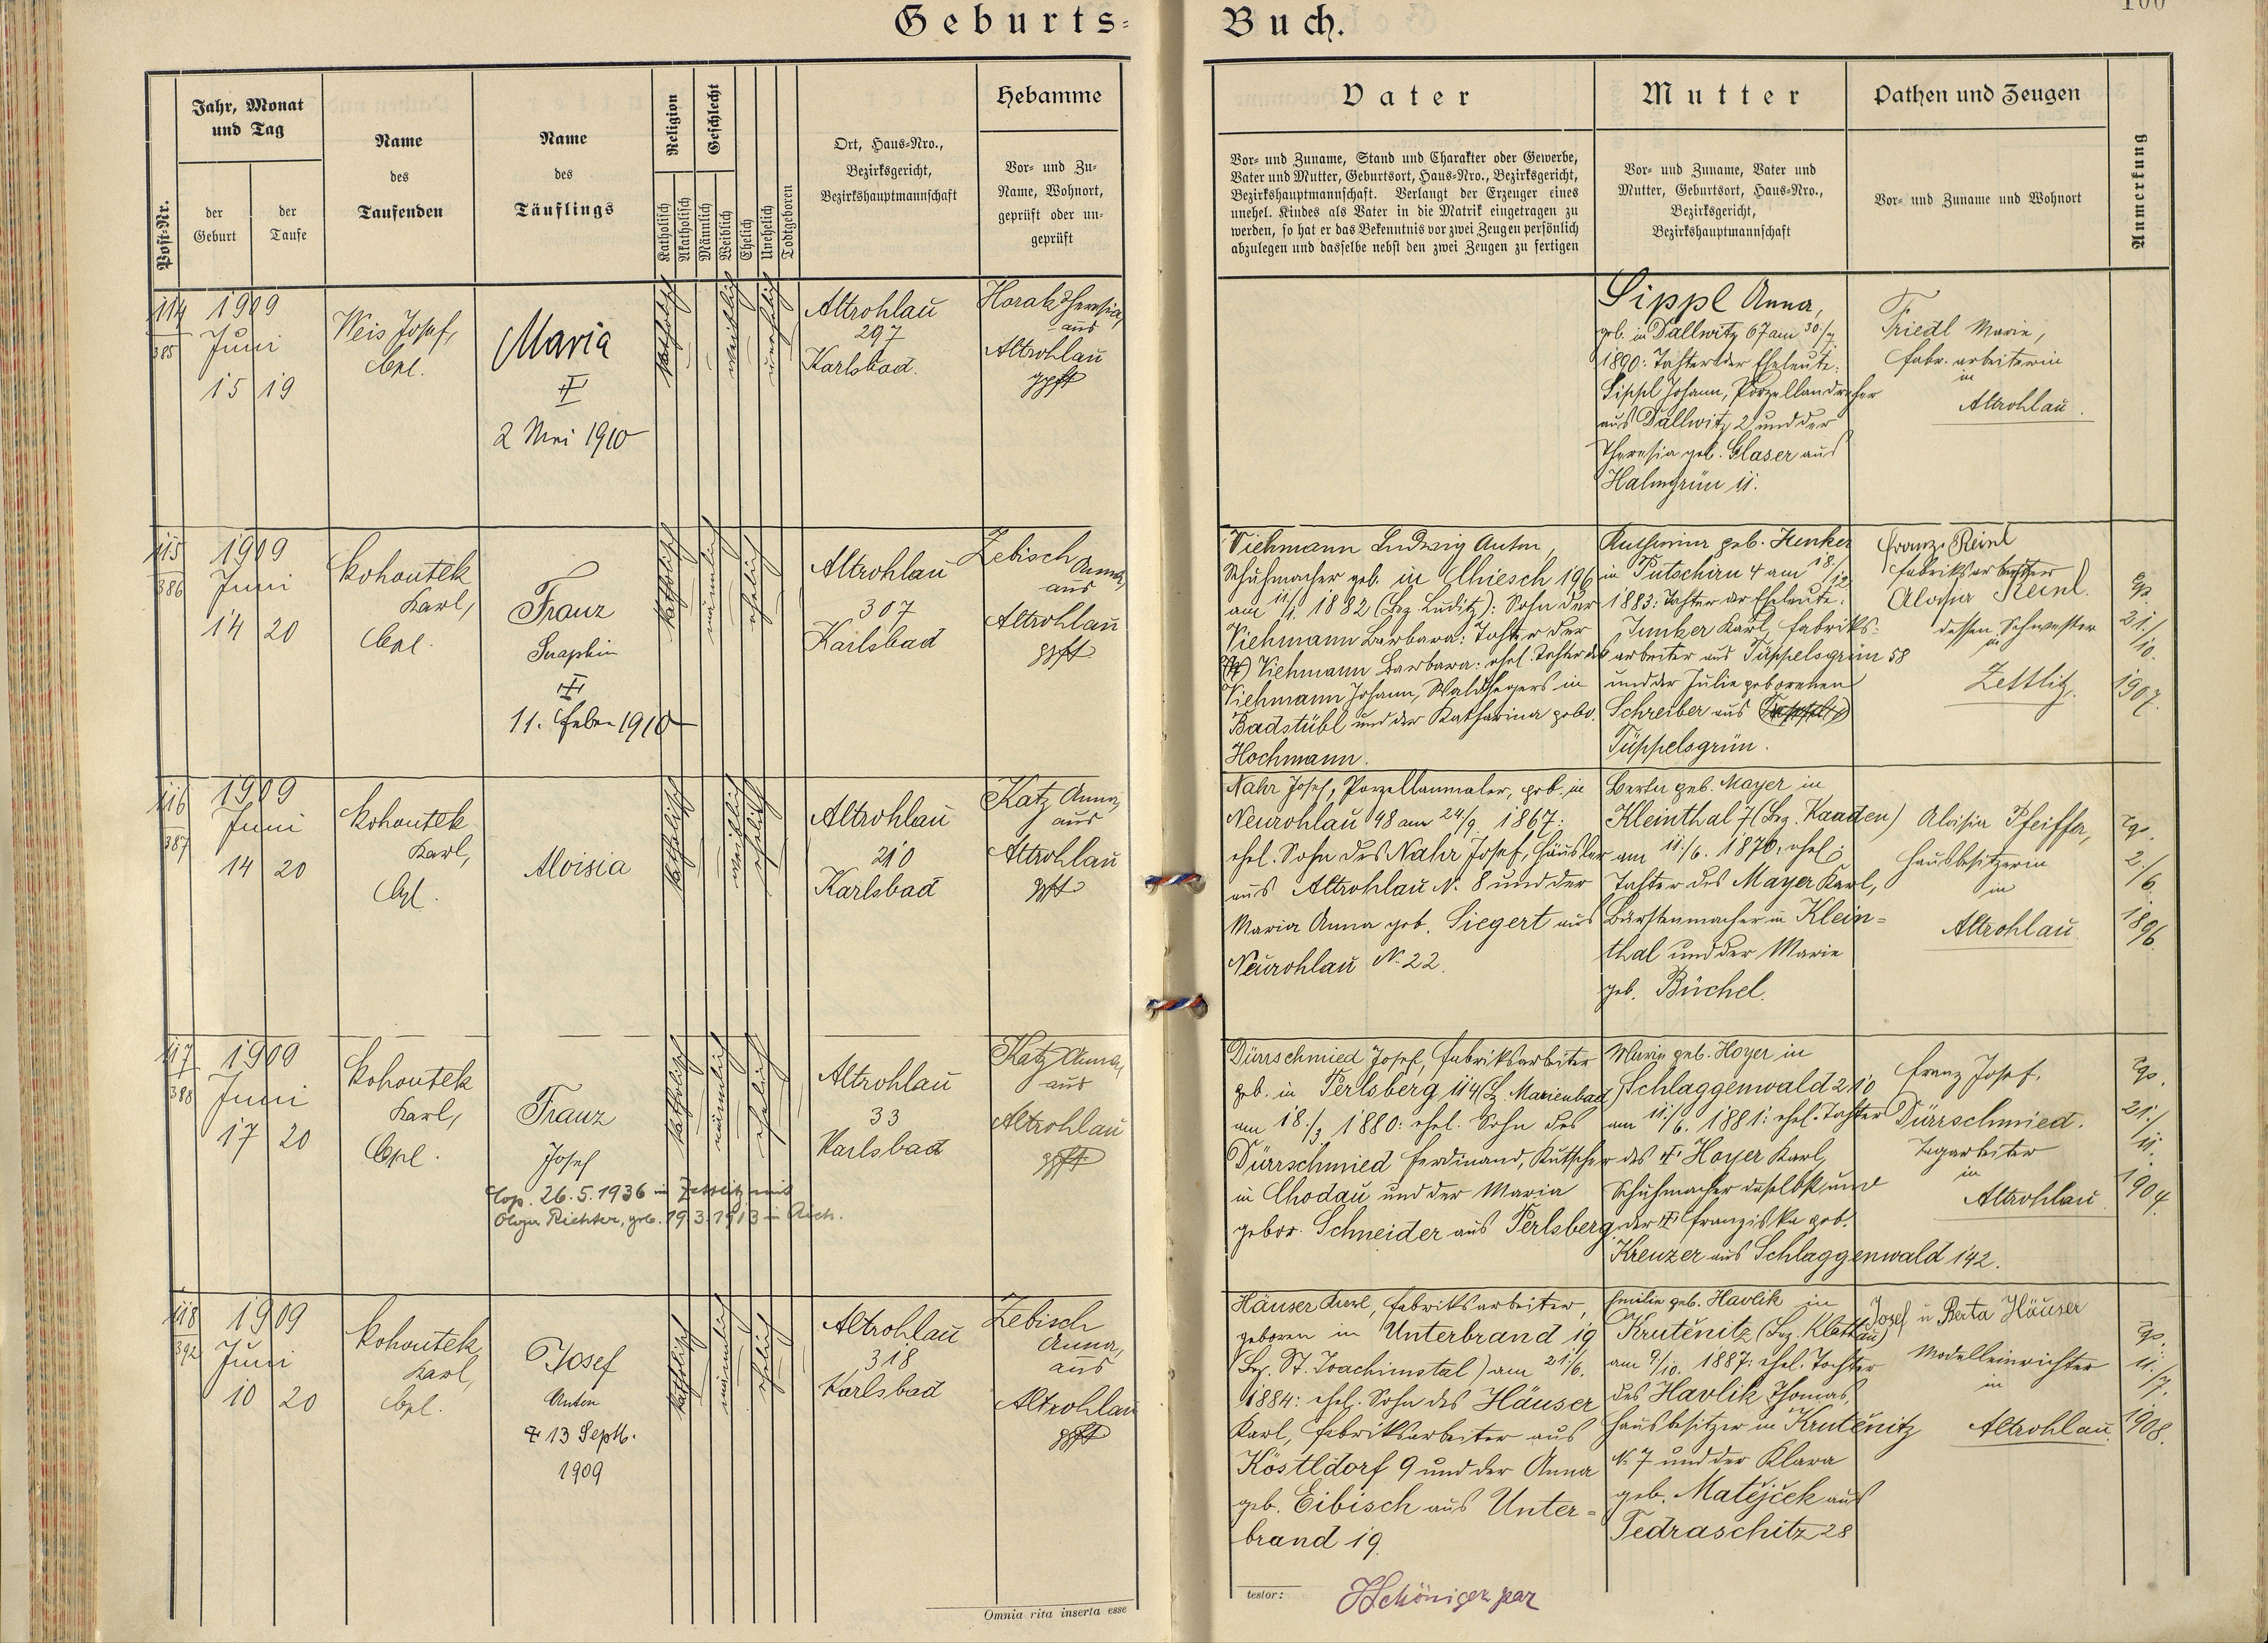 Geburts-
Buch.
100
Post-Nr.
Jahr, Monat
und Tag
der
Geburt
der
Taufe
Name
des
Taufenden
Name
des
Täuflings
Religion
Katholisch
Akatholisch
Geschlecht
Männlich
Weiblich
Ehelich
Unehelich
Todtgeboren
Ort, Haus-Nro.,
Bezirksgericht,
Bezirkshauptmannschaft
Hebamme
Vor- und Zu-
Name, Wohnort,
geprüft oder un-
geprüft
Vater
Vor- und Zuname, Stand und Charakter oder Gewerbe,
Vater und Mutter, Geburtsort, Haus-Nro., Bezirksgericht,
Bezirkshauptmannschaft. Verlangt der Erzeuger eines
unehel. Kindes als Vater in die Matrik eingetragen zu
werden, so hat er das Bekenntnis vor zwei Zeugen persönlich
abzulegen und dasselbe nebst den zwei Zeugen zu fertigen
Mutter
Vor- und Zuname, Vater und
Mutter, Geburtsort, Haus-Nro.,
Bezirksgericht,
Bezirkshauptmannschaft
Pathen und Zeugen
Vor- und Zuname und Wohnort
Anmerkung
114
385
1909
Juni
15 19
Weis Josef,
Cpl.
Maria
2 Mai 1910
katholisch
weiblich
unehelich
Altrohlau
297
Karlsbad.
Horak Theresia,
aus
Altrohlau
gpft
Sippl Anna,
geb. in Dallwitz 67 am 30./7.
1890: Tochter der Eheleute:
Sippl Johann, Porzellandreher
aus Dallwitz 2 und der
Theresia geb. Glaser aus
Halmgrün 11.
Friedl Marie,
Fabr. arbeiterin
in
Altrohlau.
115
386
1909
Juni
14 20
Kohoutek
Karl,
Cpl.
Franz
Seraphin
11. Feber 1910
katholisch
männlich
ehelich
Altrohlau
307
Karlsbad
Zebisch Anna,
aus
Altrohlau
gpft
Viehmann Ludwig Anton,
Schuhmacher geb. in Chiesch 196
am 11/1 1882 (Bez. Luditz): Sohn der
Viehmann Barbara: Tochter der
Viehmann Barbara: ehel. Tochter des
Viehmann Johann, Waldhegers in
Badstübl und der Katharina gebo.
Hochmann.
Katharina geb. Junker
in Putschirn 4 am 18/12
1883: Tochter der Eheleute:
Junker Karl, Fabriks-
arbeiter aus Tüppelsgrün 58
und der Julie geborenen
Schreiber aus
Tüppelsgrün.
Franz Reinl
Fabriksarbeiter
Aloisia Reinl.
dessen Schwester
in
Zettlitz.
Cop.
21./
10.
1907.
116
387
1909
Juni
14 20
Kohoutek
Karl,
Cpl.
Aloisia
katholisch
weiblich
ehelich
Altrohlau
210
Karlsbad
Katz Anna,
aus
Altrohlau
gpft
Nahr Josef, Porzellanmaler, geb. in
Neurohlau 48 am 24/9. 1867:
ehel. Sohn des Nahr Josef, Häusler
aus Altrohlau N. 8 und der
Maria Anna geb. Siegert aus
Neurohlau N. 22.
Berta geb. Mayer in
Kleinthal 7 (Bez. Kaaden)
am 11./6. 1876: ehel.
Tochter des Mayer Karl,
Bürstenmacher in Klein-
thal und der Marie
geb. Büchel.
Aloisia Pfeiffer,
Hausbesitzerin
in
Altrohlau.
Cop.
2./
6.
1896.
117
388
1909
Juni
17 20
Kohoutek
Karl,
Cpl.
Franz
Josef
Cop. 26.5.1936 in Zettlitz mit
Olga Richter, geb. 19.3.1913 in Aich.
katholisch
männlich
ehelich
Altrohlau
33
Karlsbad
Katz Anna,
aus
Altrohlau
gpft
Dürrschmied Josef, Fabriksarbeiter
geb. in Perlsberg 114 (Bz. Marienbad)
am 18./3 1880: ehel. Sohn des
Dürrschmied Ferdinand, Kutscher
in Chodau und der Maria
gebor. Schneider aus Perlsberg
Marie geb. Hoyer in
Schlaggenwald 210
am 11./6. 1881: ehel. Tochter
des Hoyer Karl,
Schuhmacher daselbst und
der Franziska geb.
Kreuzer aus Schlaggenwald 142.
Franz Josef.
Dürrschmied.
Tagarbeiter
in
Altrohlau.
Cop.
21./
11.
1904.
118
392
1909
Juni
10 20
Kohoutek
Karl,
Cpl.
Josef
Anton
13 Septb.
1909
katholisch
männlich
ehelich
Altrohlau
318
Karlsbad
Zebisch
Anna,
aus
Altrohlau
gpft
Häuser Karl, Fabriksarbeiter,
geboren in Unterbrand 19
(Bez. St. Joachimstal) am 21/6.
1884: ehel. Sohn des Häuser
Karl, Fabriksarbeiter aus
Köstldorf 9 und der Anna
geb. Eibisch aus Unter-
brand 19.
Emilie geb. Havlik in
Krutěnitz (Bez. Klattau)
am 9/10. 1887: ehel. Tochter
des Havlik Thomas,
Hausbesitzer in Krutěnitz
N. 7 und der Klara
geb. Matějček aus
Tedraschitz 28
Josef u Berta Häuser
Modelleinrichter
in
Altrohlau.
Cop.
11./
7.
1908.
Omnia rita inserta esse
testor: